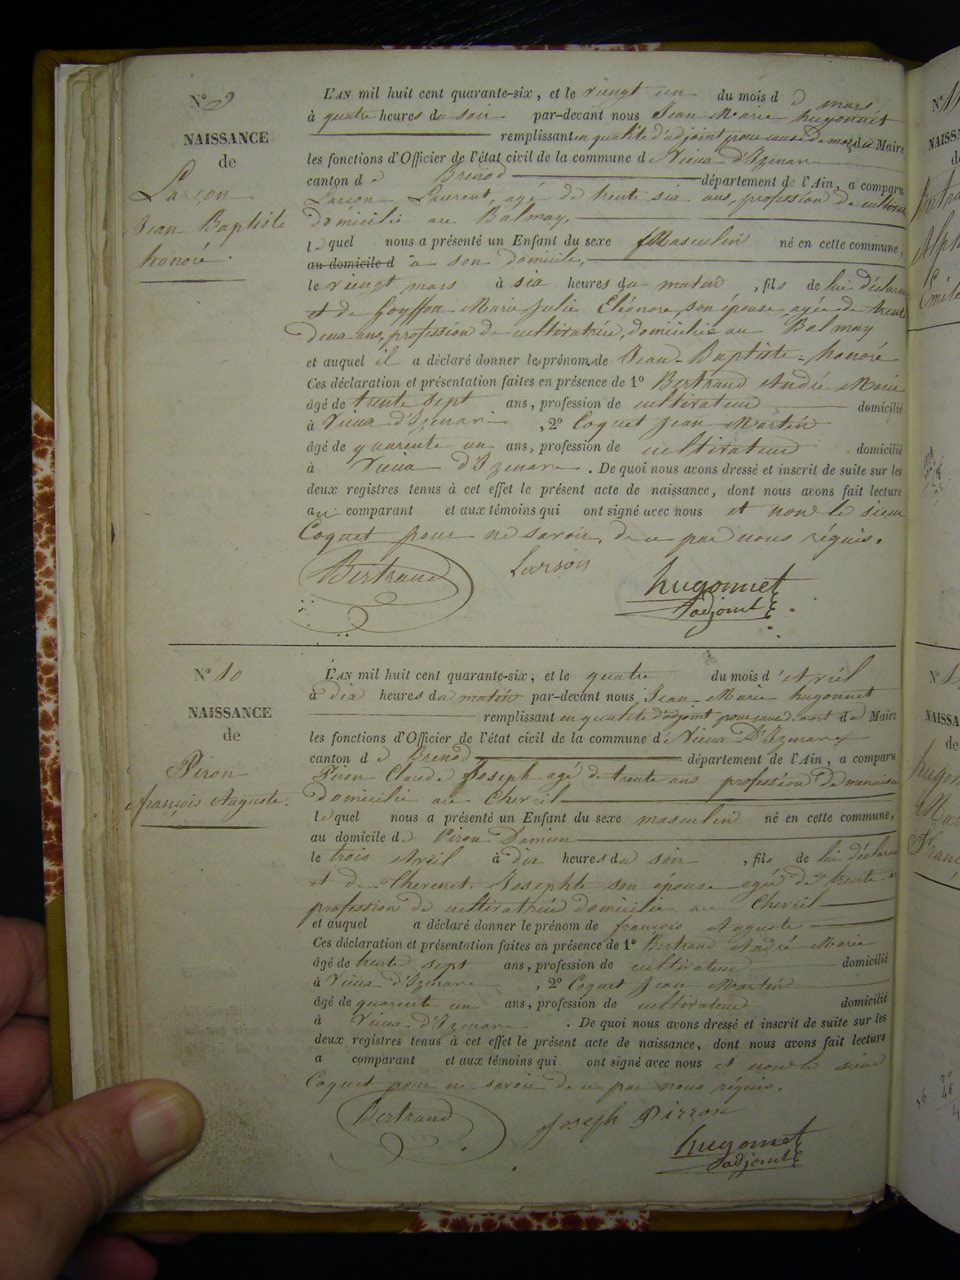 N° 9
NAISSANCE
de
Larçon
Jean Baptiste
honoré.
L'AN mil huit cent quarante-six, et le vingt un du mois de mars
à quatre heures du soir par-devant nous Jean Marie hugonnet
remplissant en qualité d'adjoint pour cause de mort du Maire
les fonctions d'Officier de l'état civil de la commune de Vieux d'Izenave
canton de Brenod département de l'Ain, a comparu
Larçon Laurent, agé de trente six ans, profession de cultivateur
domicilié au Balmay,
lequel nous a présenté un Enfant du sexe Masculin né en cette commune,
au domicile d à son domicile,
le vingt mars à six heures du matin, fils de lui déclarant
et de Goyffon Marie Julie Eléonore, son épouse, agée de trente
deux ans, profession de cultivatrice, domiciliée au Balmay
et auquel il a déclaré donner les prénoms de Jean-Baptiste-honoré
Ces déclaration et présentation faites en présence de 1° Bertrand André Marie
âgé de trente sept ans, profession de cultivateur domicilié
à Vieux d'Izenave, 2° Coquet Jean Martin
âgé de quarente un ans, profession de cultivateur domicilié
à Vieux d'Izenave. De quoi nous avons dressé et inscrit de suite sur les
deux registres tenus à cet effet le présent acte de naissance, dont nous avons fait lecture
au comparant et aux témoins qui ont signé avec nous et non le sieur
Coquet pour ne savoir, de ce par nous réquis.
Bertrand Larson hugonnet
adjoint
N° 10
NAISSANCE
de
Piron
françois Auguste.
L'AN mil huit cent quarante-six, et le quatre du mois d'Avril
à dix heures du matin par-devant nous Jean-Marie hugonnet
remplissant en qualité d'adjoint pour cause de mort du Maire
les fonctions d'Officier de l'état civil de la commune de Vieux D'Izenave
canton de Brenod département de l'Ain, a comparu
Piron Claude Joseph agé de trente ans profession De menuisier
domicilié au Chevril
lequel nous a présenté un Enfant du sexe masculin né en cette commune,
au domicile de Piron Damien
le trois Avril à dix heures du soir, fils de lui déclarant
et de Chevenet Josephte son épouse agée de trente
profession de cultivatrice domiciliée au Chevril
et auquel a déclaré donner le prénom de françois Auguste
Ces déclaration et présentation faites en présence de 1° Bertrand André Marie
âgé de trente sept ans, profession de cultivateur domicilié
à Vieux d'Izenave, 2° Coquet Jean Martin
âgé de quarent un ans, profession de cultivateur domicilié
à Vieux d'Izenave. De quoi nous avons dressé et inscrit de suite sur les
deux registres tenus à cet effet le présent acte de naissance, dont nous avons fait lecture
a comparant et aux témoins qui ont signé avec nous et non le sieur
Coquet pour ne savoir de ce par nous réquis.
Bertrand Joseph Pirron hugonnet
adjoint